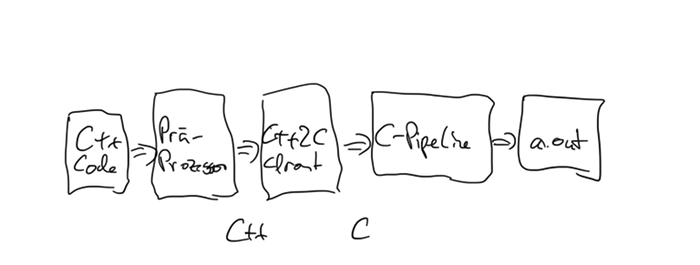 C++
Code
Prä-
Prozessor
C++2C
cfront
C-Pipeline
a.out
C++
C